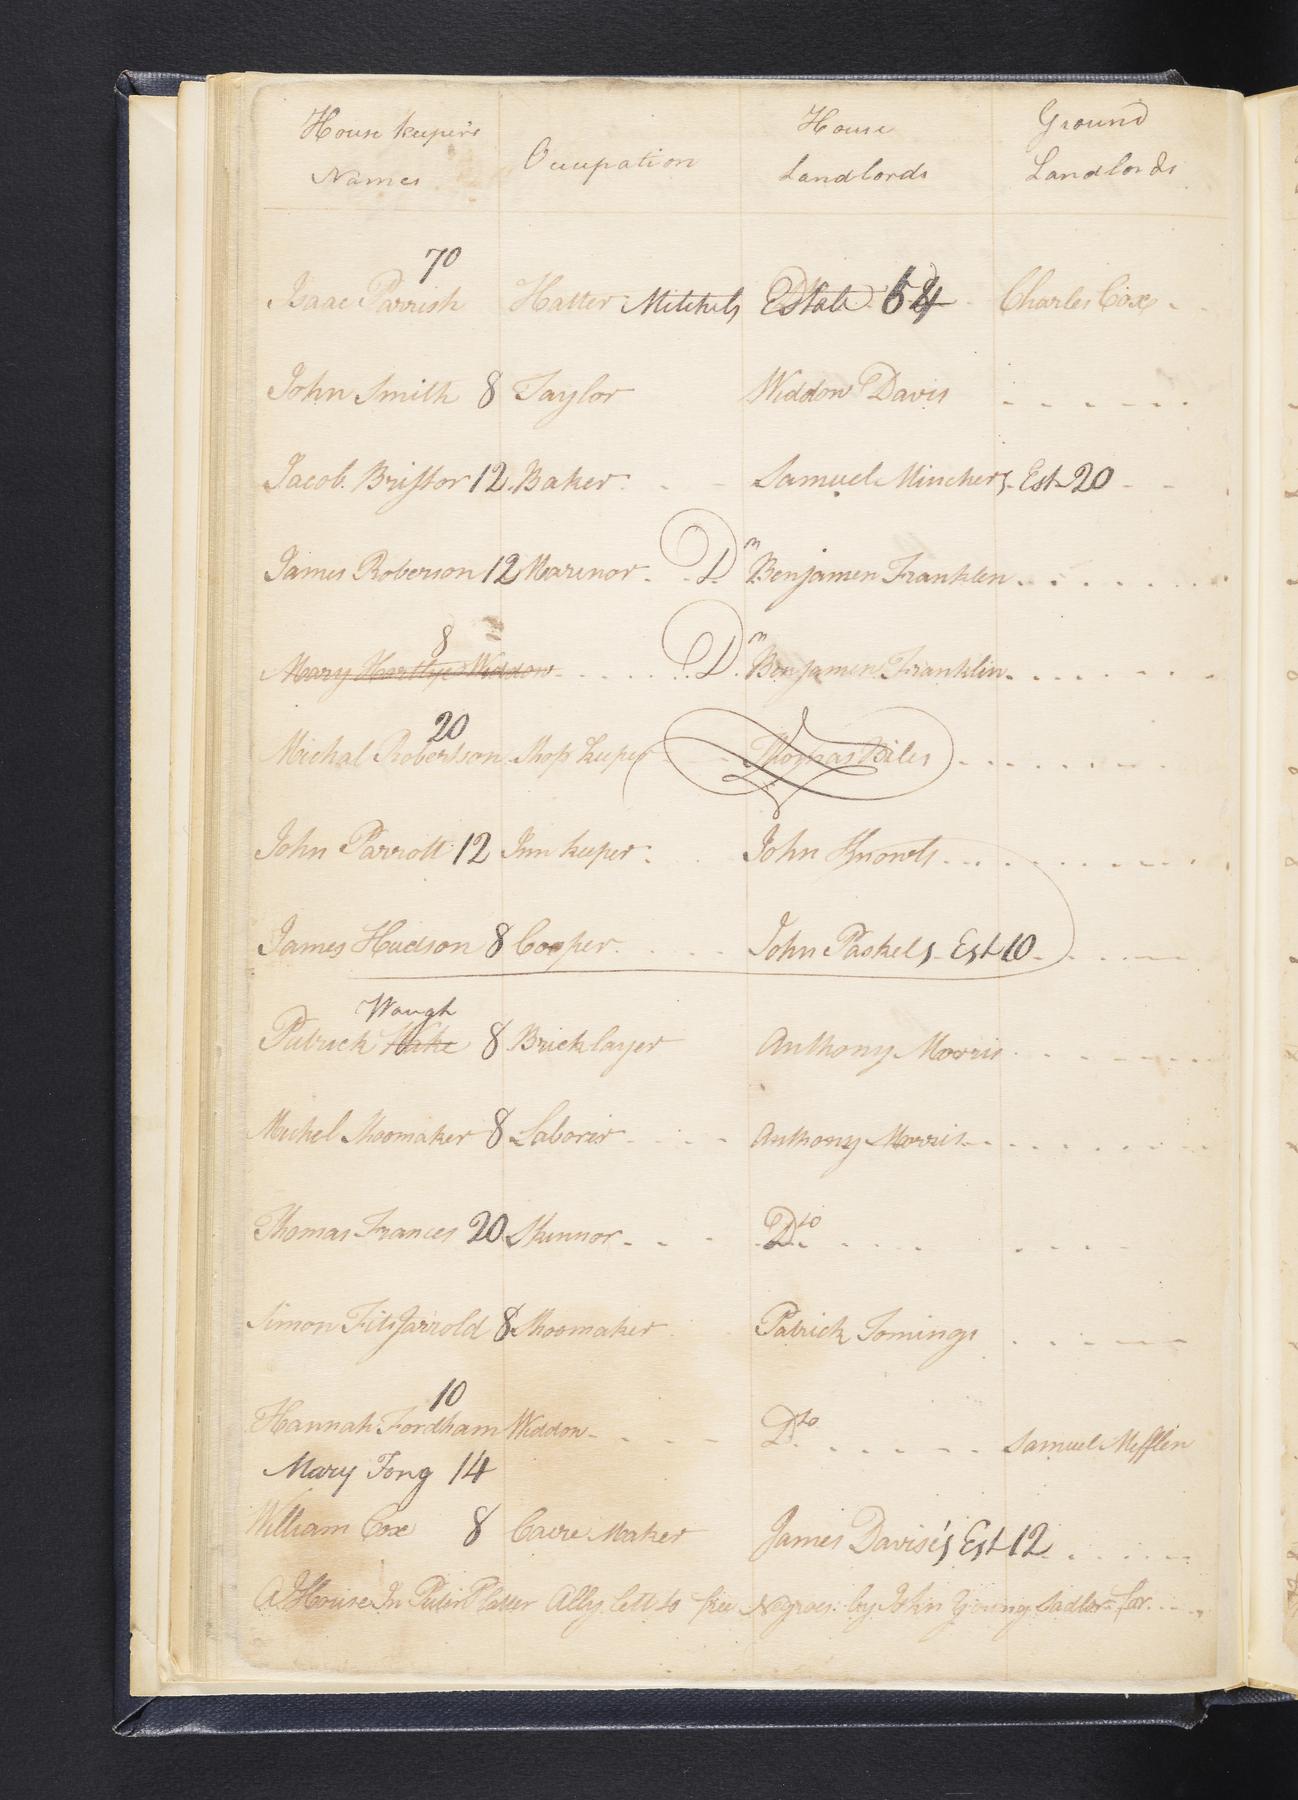 House keeper's Names Occupation House Landlords Ground Landlords
70
Isaac Parrish Hatter Mitchels Estate 64 Charles Coxe
John Smith 8 Taylor Widdow Davis
Jacob Brisstor 12 Baker Samuel Minchers Est 20
James Roberson 12 Marenor Dr Benjamen Franklen
8
Mary Widdow Dr Benjamen Franklin
20
Michal Robertson Shop keeper Thomas Biles
John Parrott 12 Inn keeper John Knowls
James Hudson 8 Cooper John Paskels Est 10
Waugh
Patrick Wake 8 Bricklayer Anthony Morris
Michel Shoomaker 8 Laborer Anthony Morris
Thomas Frances 20 Skinnor Dto
Simon Fitsjarrold 8 Shoomaker Patrick Jomings
10
Hannah Fordham Widdow Dto Samuel Mifflin
Mary Tong 14
William Cox 8 Maker James Davis's Est 12
A House In Puter Platter Ally lett to free Negroes by John Young Sadlor for